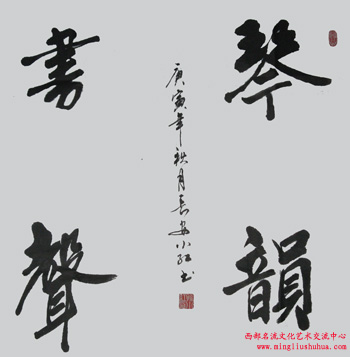 琴韻
庚寅年秋月長安小紅書
書聲
西部名流文化艺术交流中心
www.mingliushuhua.com